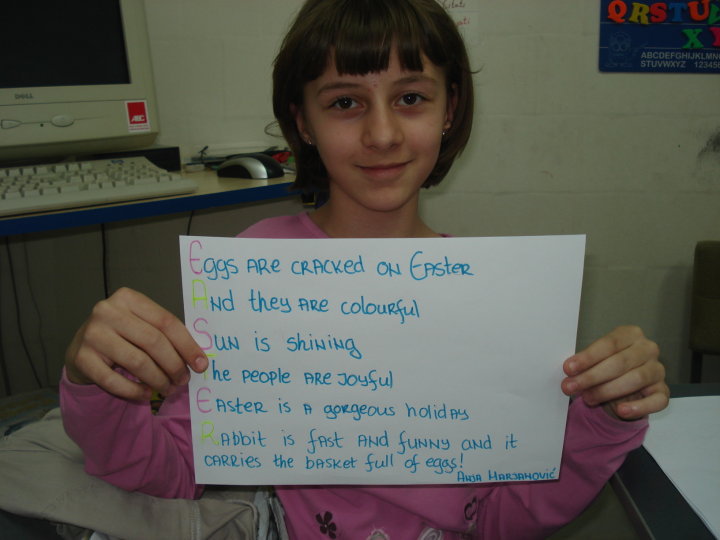 DELL
ABC
QRSTU
XY
ABCDEFGHIJKLMN
STUVWXYZ 123456
Eggs are cracked on Easter
And they are colourful
Sun is shining
The people are joyful
Easter is a gorgeous holiday
Rabbit is fast and funny and it
carries the basket full of eggs!
Anja Marjanović